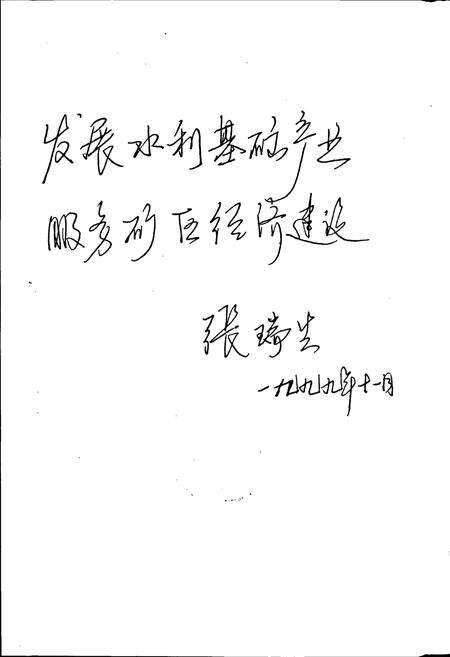 发展水利基础产业
服务矿区经济建设
张琦生
一九九九年十一月